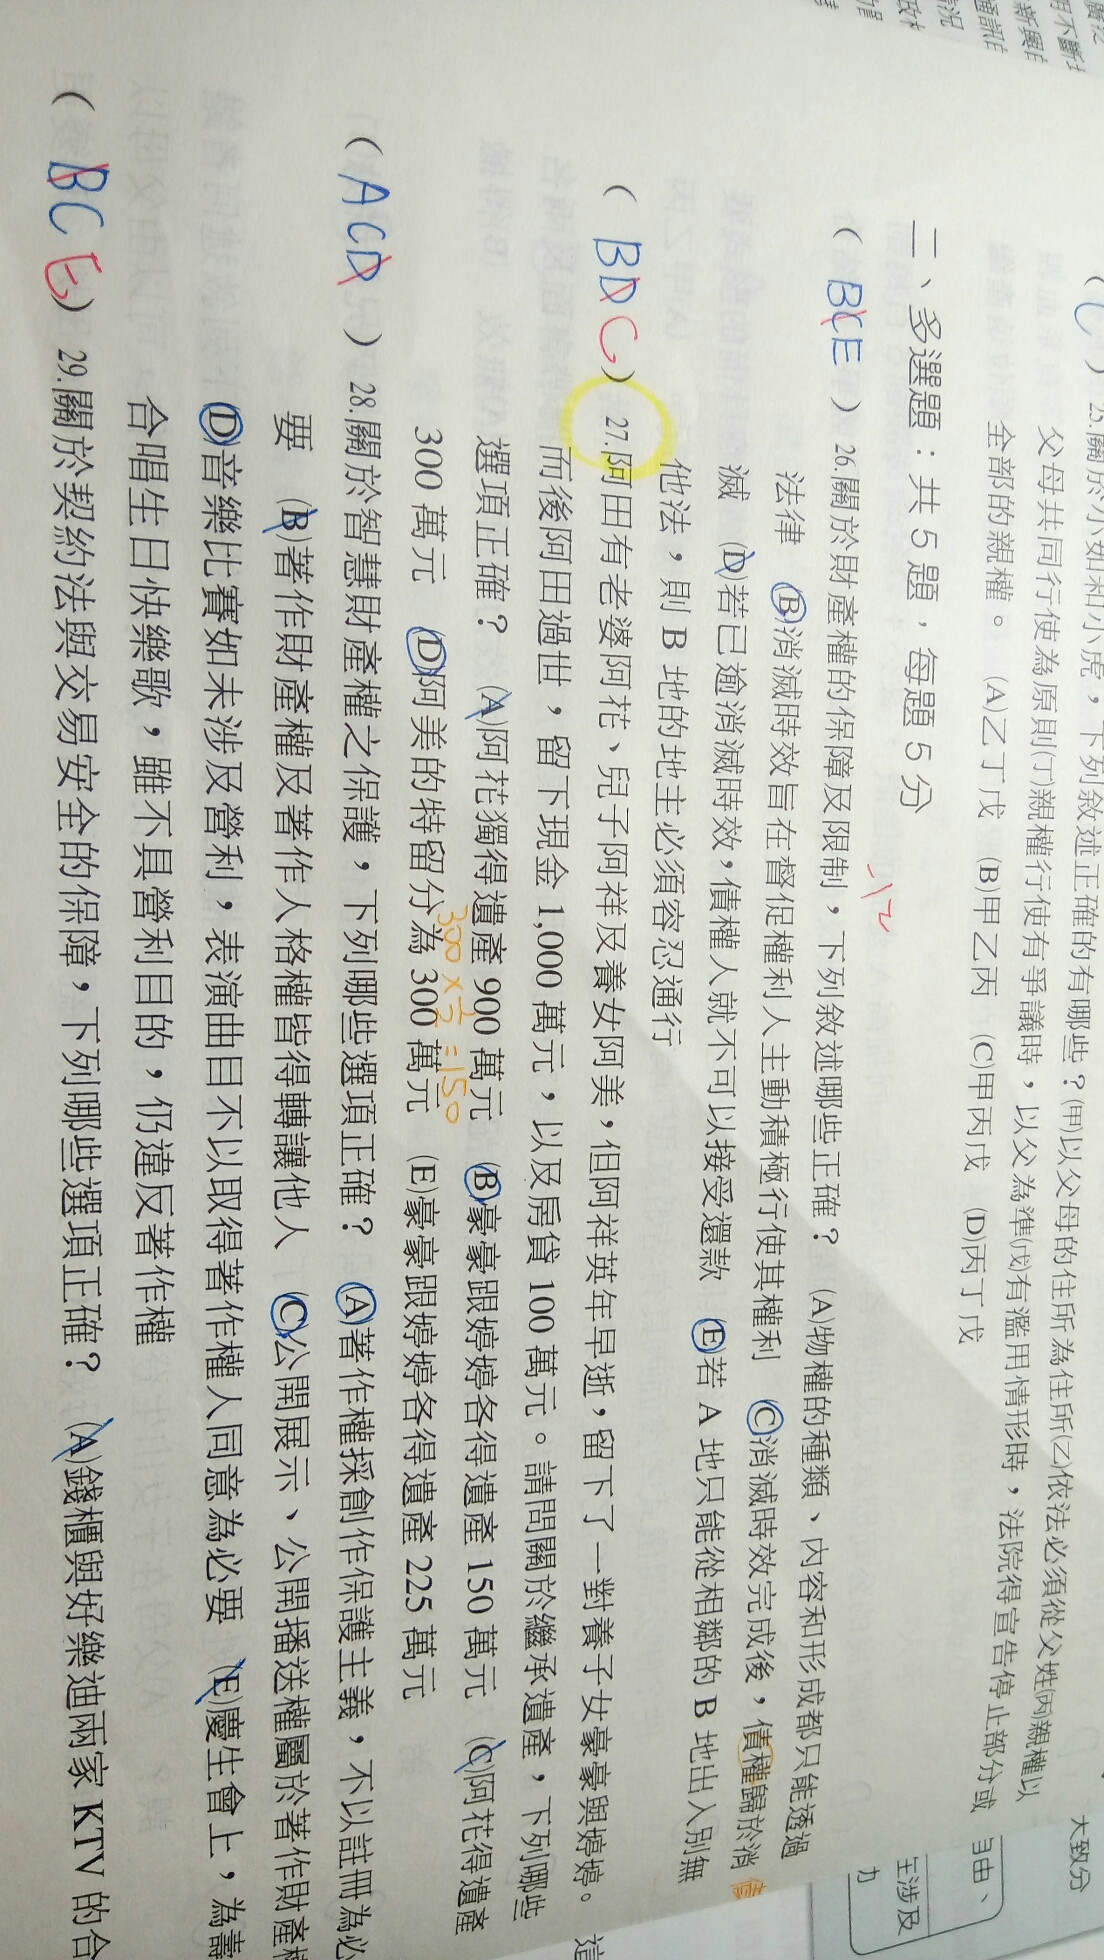 (C) 25.關於小如和小虎，下列敘述正確的有哪些？(甲)以父母的住所為住所(乙)依法必須從父姓(丙)親權以
父母共同行使為原則(丁)親權行使有爭議時，以父為準(戊)有濫用情形時，法院得宣告停止部分或
全部的親權。 (A)乙丁戊 (B)甲乙丙 (C)甲丙戊 (D)丙丁戊
二、多選題：共 5 題，每題 5 分
-12
(BCE) 26.關於財產權的保障及限制，下列敘述哪些正確？ (A)物權的種類、內容和形成都只能透過
法律 (B)消滅時效旨在督促權利人主動積極行使其權利 (C)消滅時效完成後，債權歸於消
滅 (D)若已逾消滅時效，債權人就不可以接受還款 (E)若 A 地只能從相鄰的 B 地出入別無
他法，則 B 地的地主必須容忍通行
(BDC) 27.阿田有老婆阿花、兒子阿祥及養女阿美，但阿祥英年早逝，留下了一對養子女豪豪與婷婷。這
而後阿田過世，留下現金 1,000 萬元，以及房貸 100 萬元。請問關於繼承遺產，下列哪些
選項正確？ (A)阿花獨得遺產 900 萬元 (B)豪豪跟婷婷各得遺產 150 萬元 (C)阿花得遺產
300×1/2=150
300 萬元 (D)阿美的特留分為 300 萬元 (E)豪豪跟婷婷各得遺產 225 萬元
(ACD) 28.關於智慧財產權之保護，下列哪些選項正確？ (A)著作權採創作保護主義，不以註冊為必
要 (B)著作財產權及著作人格權皆得轉讓他人 (C)公開展示、公開播送權屬於著作財產權
(D)音樂比賽如未涉及營利，表演曲目不以取得著作權人同意為必要 (E)慶生會上，為壽
合唱生日快樂歌，雖不具營利目的，仍違反著作權
(BCE) 29.關於契約法與交易安全的保障，下列哪些選項正確？ (A)錢櫃與好樂迪兩家 KTV 的合
大致分
自由、
主涉及
力